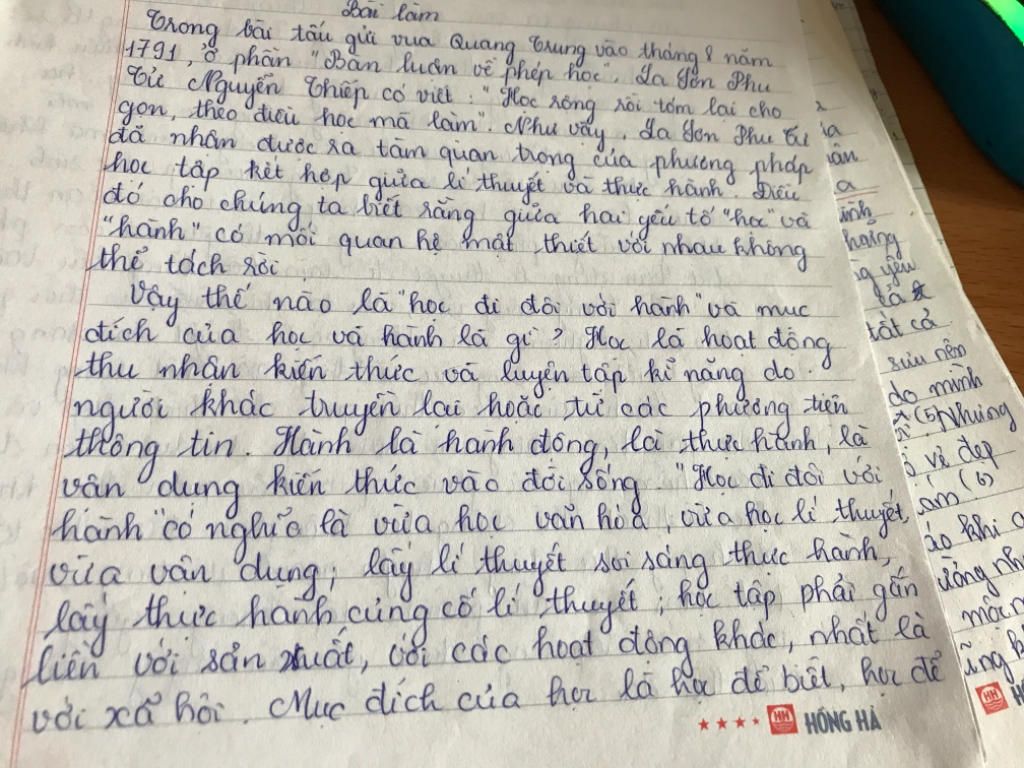 Bài làm
Trong bài tấu gửi vua Quang Trung vào tháng 8 năm
1791, ở phần "Bàn luận về phép học", La Sơn Phu
Tử Nguyễn Thiếp có viết: "Học rộng rồi tóm lại cho
gọn, theo điều học mà làm". Như vậy, La Sơn Phu Tử
đã nhận được ra tầm quan trọng của phương pháp
học tập kết hợp giữa lí thuyết và thực hành. Điều
đó cho chúng ta biết rằng giữa hai yếu tố "học" và
"hành" có mối quan hệ mật thiết với nhau không
thể tách rời
Vậy thế nào là "học đi đôi với hành" và mục
đích của học và hành là gì? Học là hoạt động
thu nhận kiến thức và luyện tập kĩ năng do
người khác truyền lại hoặc từ các phương tiện
thông tin. Hành là hành động, là thực hành, là
vận dụng kiến thức vào đời sống. "Học đi đôi với
hành" có nghĩa là vừa học văn hóa, vừa học lí thuyết,
vừa vận dụng; lấy lí thuyết soi sáng thực hành,
lấy thực hành củng cố lí thuyết; học tập phải gắn
liền với sản xuất, với các hoạt động khác, nhất là
với xã hội. Mục đích của học là học để biết, học để
HỒNG HÀ
tất cả
do minh
(5) Nhưng
vẻ đẹp
(6)
khi